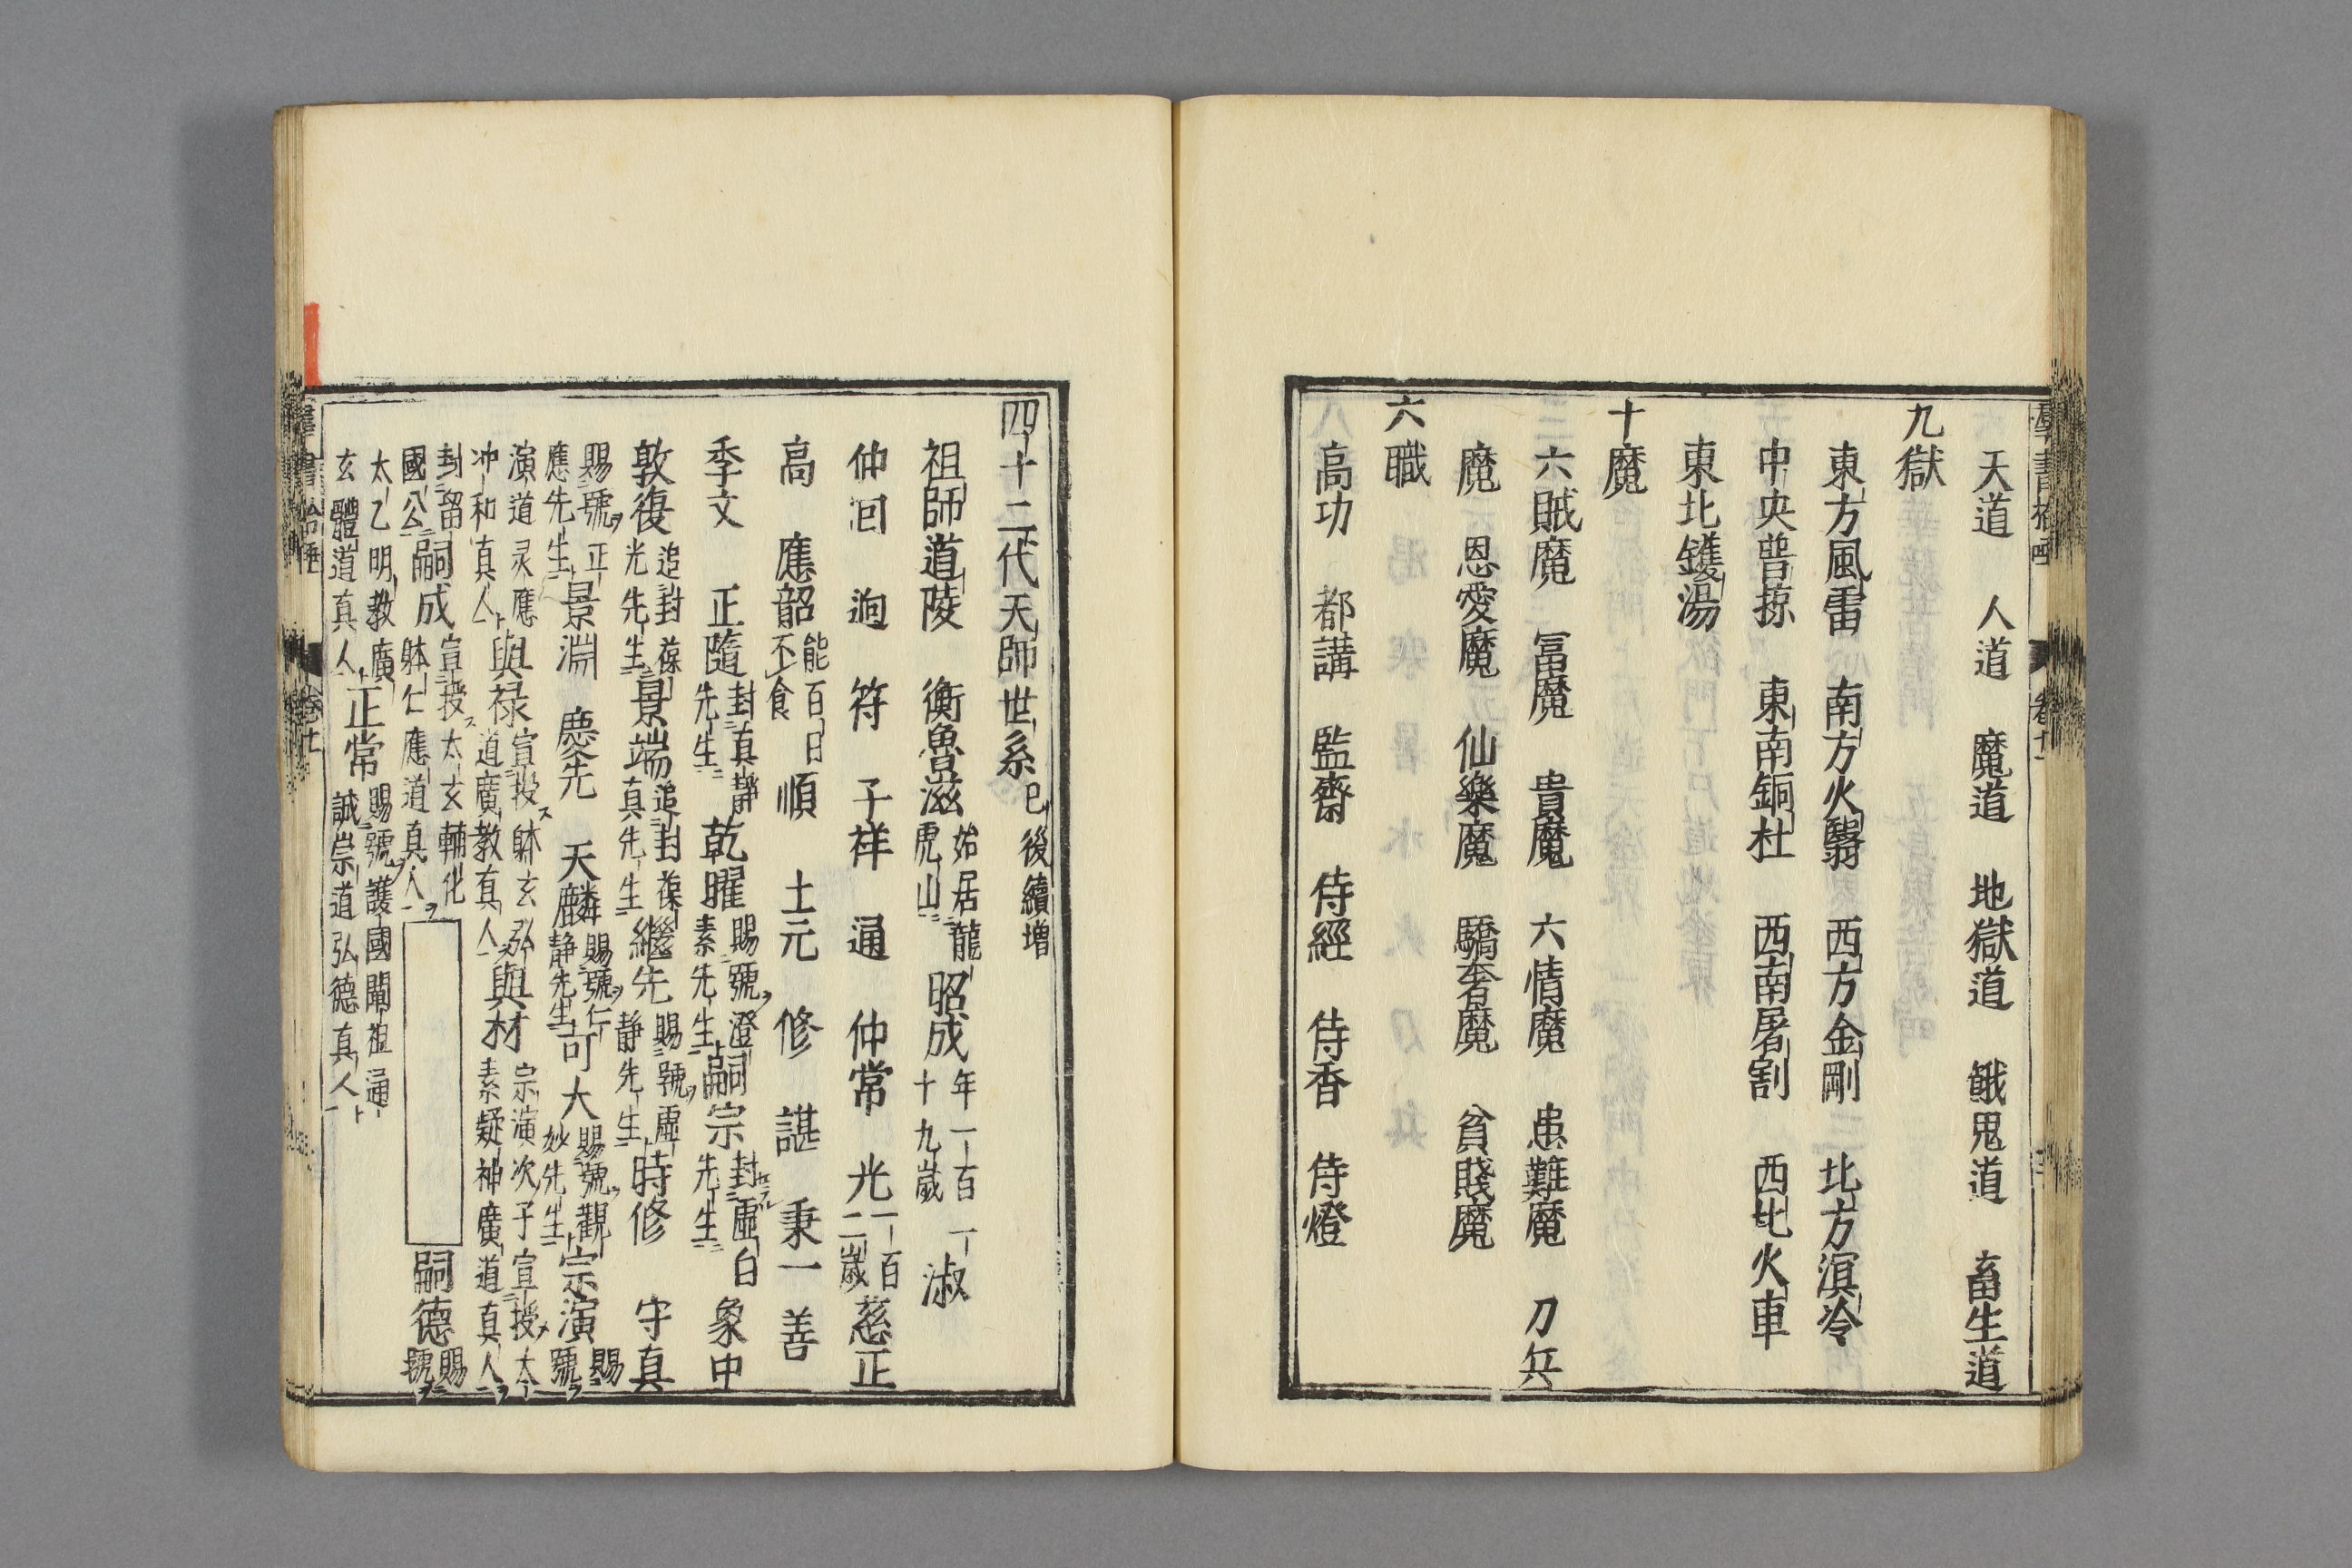 天道　人道　魔道　地獄道　餓鬼道　畜生道
九獄
東方風雷　南方火翳　西方金剛　北方溟冷
中央普掠　東南銅柱　西南屠割　西北火車
東北鑊湯
十魔
六賊魔　冨魔　貴魔　六情魔　患難魔　刀兵
魔　恩愛魔　仙樂魔　驕奢魔　貧賤魔
六職
高功　都講　監齋　侍經　侍香　侍燈
四十二代天師世系 已後續増
祖師道陵　衡魯滋 始居龍虎山 昭成 年一百一十九歳 淑
仲回　迥　符　子祥　通　仲常　光 一百二歳 慈正
高　應韶 能百日不食 順　士元　修　諶　秉一　善
季文　正隨 封真靜先生 乾曜 賜號澄素先生 嗣宗 封虛白先生 象中
敦復 追封葆光先生 景端 追封葆真先生 繼先 賜號虛静先生 時修　守真
賜號正應先生 景淵　慶先　天麟 賜號仁静先生 可大 賜號觀妙先生 宗演 賜號
演道灵應冲和真人 與禄 宣授躰玄弘道廣教真人 與材 宗演次子宣授太素凝神廣道真人
封留國公 嗣成 宣授太玄輔化躰仁應道真人 嗣德 賜號
太乙明教廣玄體道真人 正常 賜號護國闡祖通誠崇道弘德真人